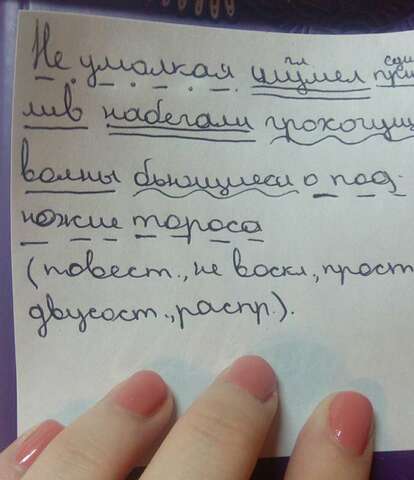 гл сущ
Не умолкая шумел при
лив набегали грохочущи
волны бьющиеся о под-
ножие тороса
(повест., не воскл., прост
двусост., распр.).